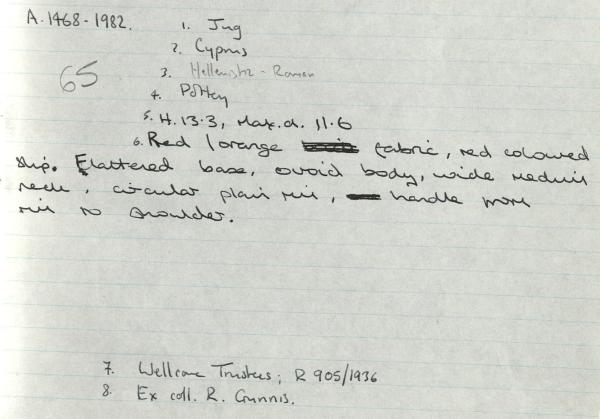 A.1468-1982.
1. Jug
2. Cyprus
65
3. Hellenistic - Roman
4. Pottery
5. H. 13.3, Max. d. 11.6
6. Red / orange fabric, red coloured
slip. Flattered base, ovoid body, wide medium
neck, circular plain rim, handle from
rim to shoulder.
7. Wellcome Trustees; R 905/1936
8. Ex coll. R. Gunnis.